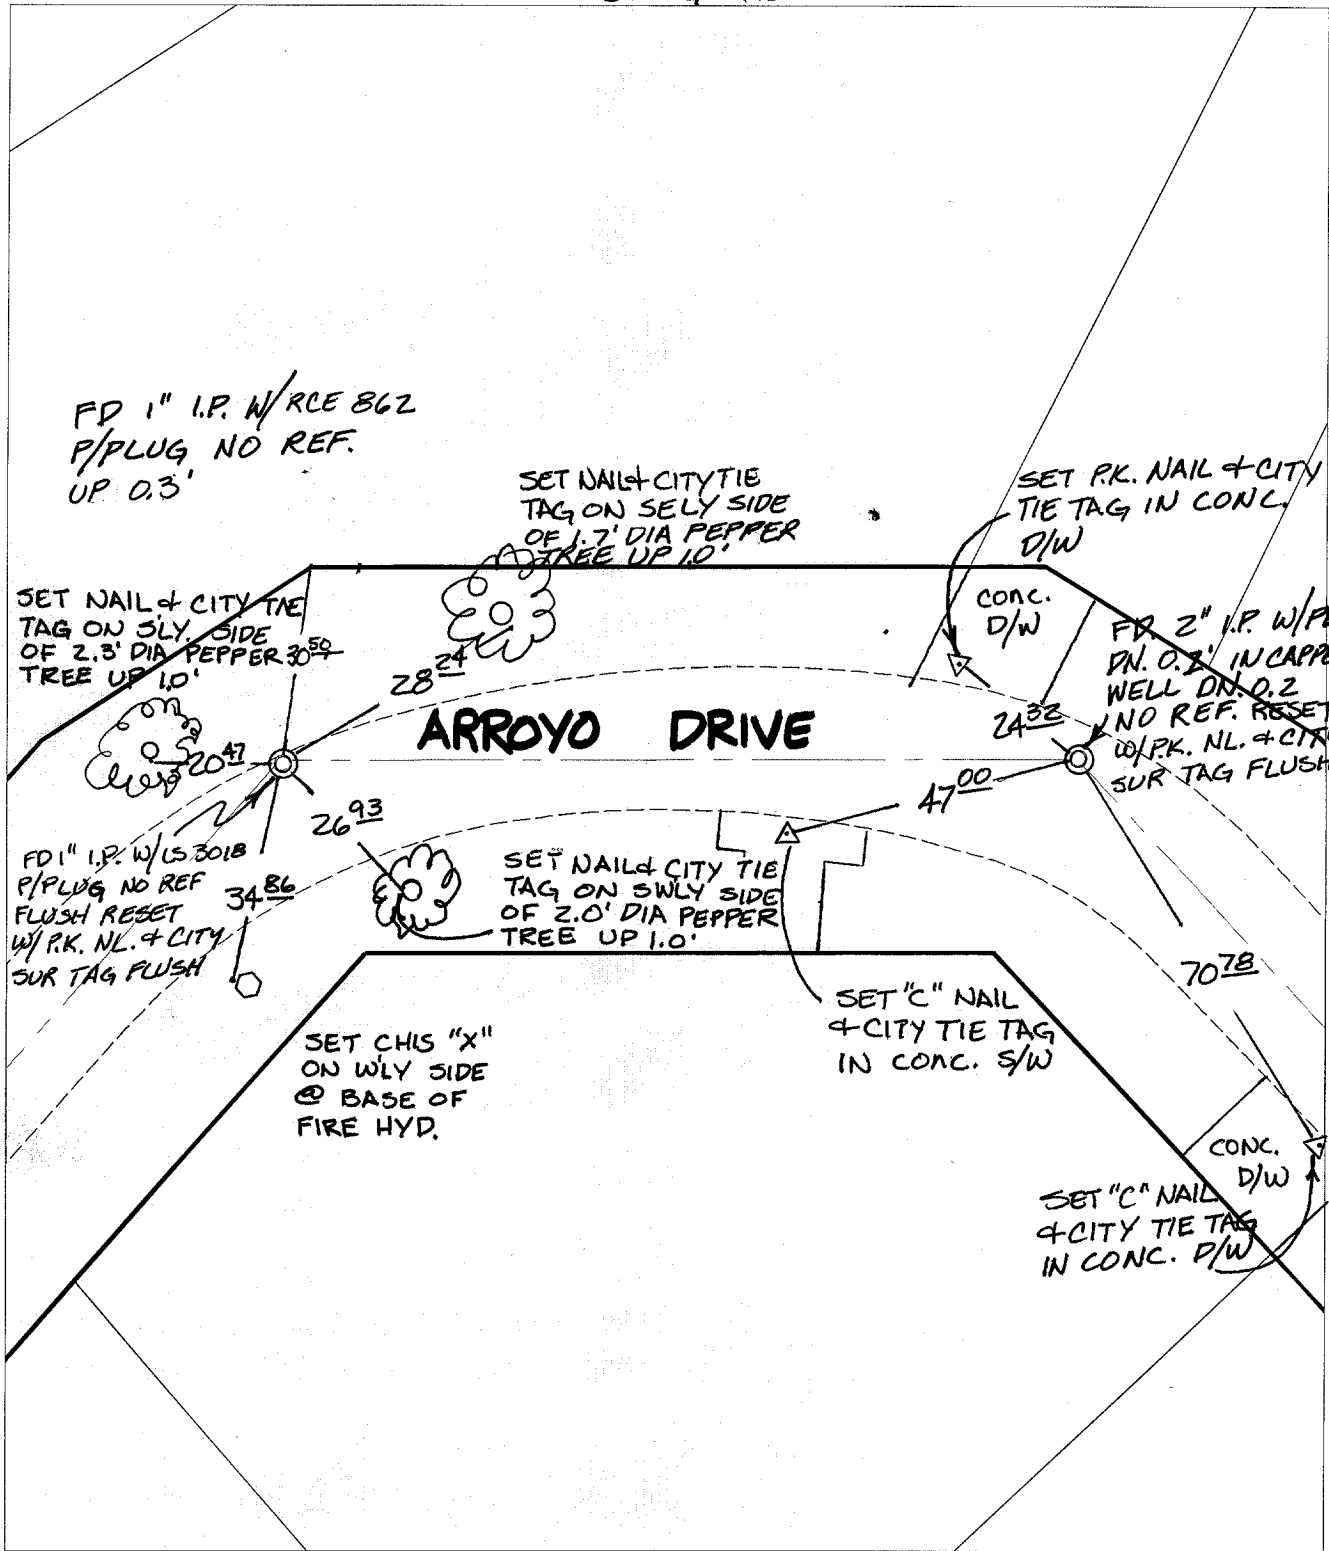 FD 1" I.P. W/RCE 862
P/PLUG NO REF.
UP 0.3'
SET NAIL & CITY TIE
TAG ON SELY SIDE
OF 1.7' DIA PEPPER
TREE UP 1.0'
SET P.K. NAIL & CITY
TIE TAG IN CONC.
D/W
SET NAIL & CITY TIE
TAG ON SLY. SIDE
OF 2.3' DIA PEPPER
TREE UP 1.0'
30 50
28 24
CONC.
D/W
FD 2" I.P. W/
DN. 0.2' IN
WELL DN. 0.2
NO REF. RESET
W/P.K. NL. &
SUR TAG FLUSH
ARROYO DRIVE
24 32
20 47
47 00
26 93
FD 1" I.P. W/LS 3018
P/PLUG NO REF
FLUSH RESET
W/ P.K. NL. & CITY
SUR TAG FLUSH
34 86
SET NAIL & CITY TIE
TAG ON SWLY SIDE
OF 2.0' DIA PEPPER
TREE UP 1.0'
70 78
SET "C" NAIL
& CITY TIE TAG
IN CONC. S/W
SET CHIS "X"
ON W'LY SIDE
@ BASE OF
FIRE HYD.
CONC.
D/W
SET "C" NAIL
& CITY TIE TAG
IN CONC. D/W